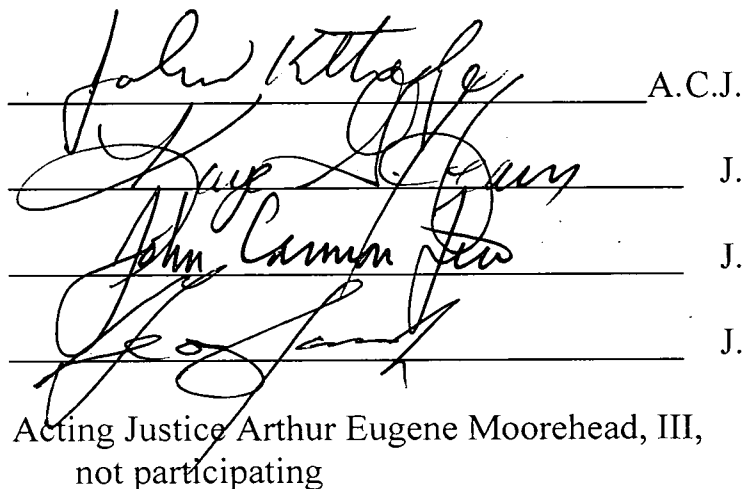 John Kittredge A.C.J.
Kaye G. Hearn J.
John Cannon Few J.
J.
Acting Justice Arthur Eugene Moorehead, III,
not participating